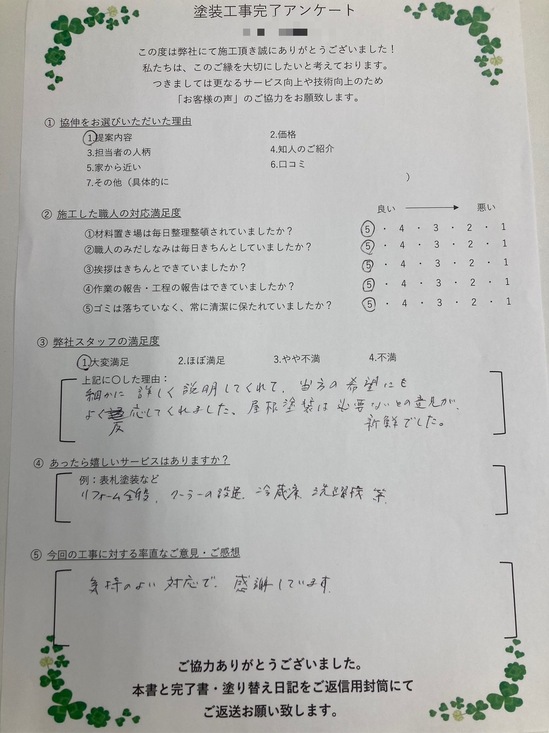 塗装工事完了アンケート
この度は弊社にて施工頂き誠にありがとうございました！
私たちは、このご縁を大切にしたいと考えております。
つきましては更なるサービス向上や技術向上のため
「お客様の声」のご協力をお願致します。
① 協伸をお選びいただいた理由
1.提案内容 2.価格
3.担当者の人柄 4.知人のご紹介
5.家から近い 6.口コミ
7.その他（具体的に ）
② 施工した職人の対応満足度 良い 悪い
①材料置き場は毎日整理整頓されていましたか？ 5 ・ 4 ・ 3 ・ 2 ・ 1
②職人のみだしなみは毎日きちんとしていましたか？ 5 ・ 4 ・ 3 ・ 2 ・ 1
③挨拶はきちんとできていましたか？ 5 ・ 4 ・ 3 ・ 2 ・ 1
④作業の報告・工程の報告はできていましたか？ 5 ・ 4 ・ 3 ・ 2 ・ 1
⑤ゴミは落ちていなく、常に清潔に保たれていましたか？ 5 ・ 4 ・ 3 ・ 2 ・ 1
③ 弊社スタッフの満足度
1.大変満足 2.ほぼ満足 3.やや不満 4.不満
上記に〇した理由：
細かに詳しく説明してくれて、当方の希望にも
よく反応してくれました、屋根塗装は必要ないとの意見が、
新鮮でした。
④ あったら嬉しいサービスはありますか？
例：表札塗装など
リフォーム全般、クーラーの設置、冷蔵庫、洗濯機等
⑤ 今回の工事に対する率直なご意見・ご感想
気持のよい対応で、感謝しています
ご協力ありがとうございました。
本書と完了書・塗り替え日記をご返信用封筒にて
ご返送お願い致します。